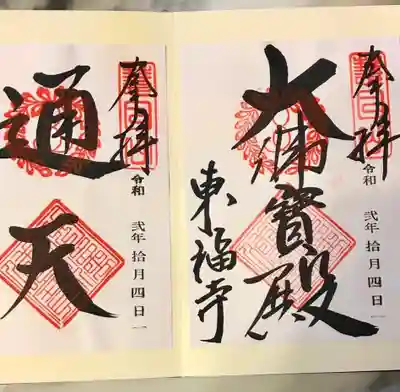 奉拝
令和 弐年 拾月 四日
大佛寳殿
東福寺
奉拝
令和 弐年 拾月 四日
通天